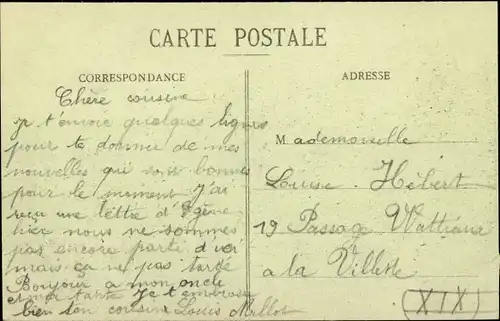 CARTE POSTALE
CORRESPONDANCE
Chère cousine
je t'envoie quelques lignes
pour te donner de mes
nouvelles qui sont bonnes
pour le moment J'ai
reçu une lettre d'Egène
hier nous ne sommes
pas encore parti d'ici
mais ça ne pas tardé
Bonjour a mon oncle
et ma tante Je t'embrasse
bien ton cousin Louis Millot
ADRESSE
Mademoiselle
Louise Hébert
19 Passage Wattiaux
a la Villette
(XIX)